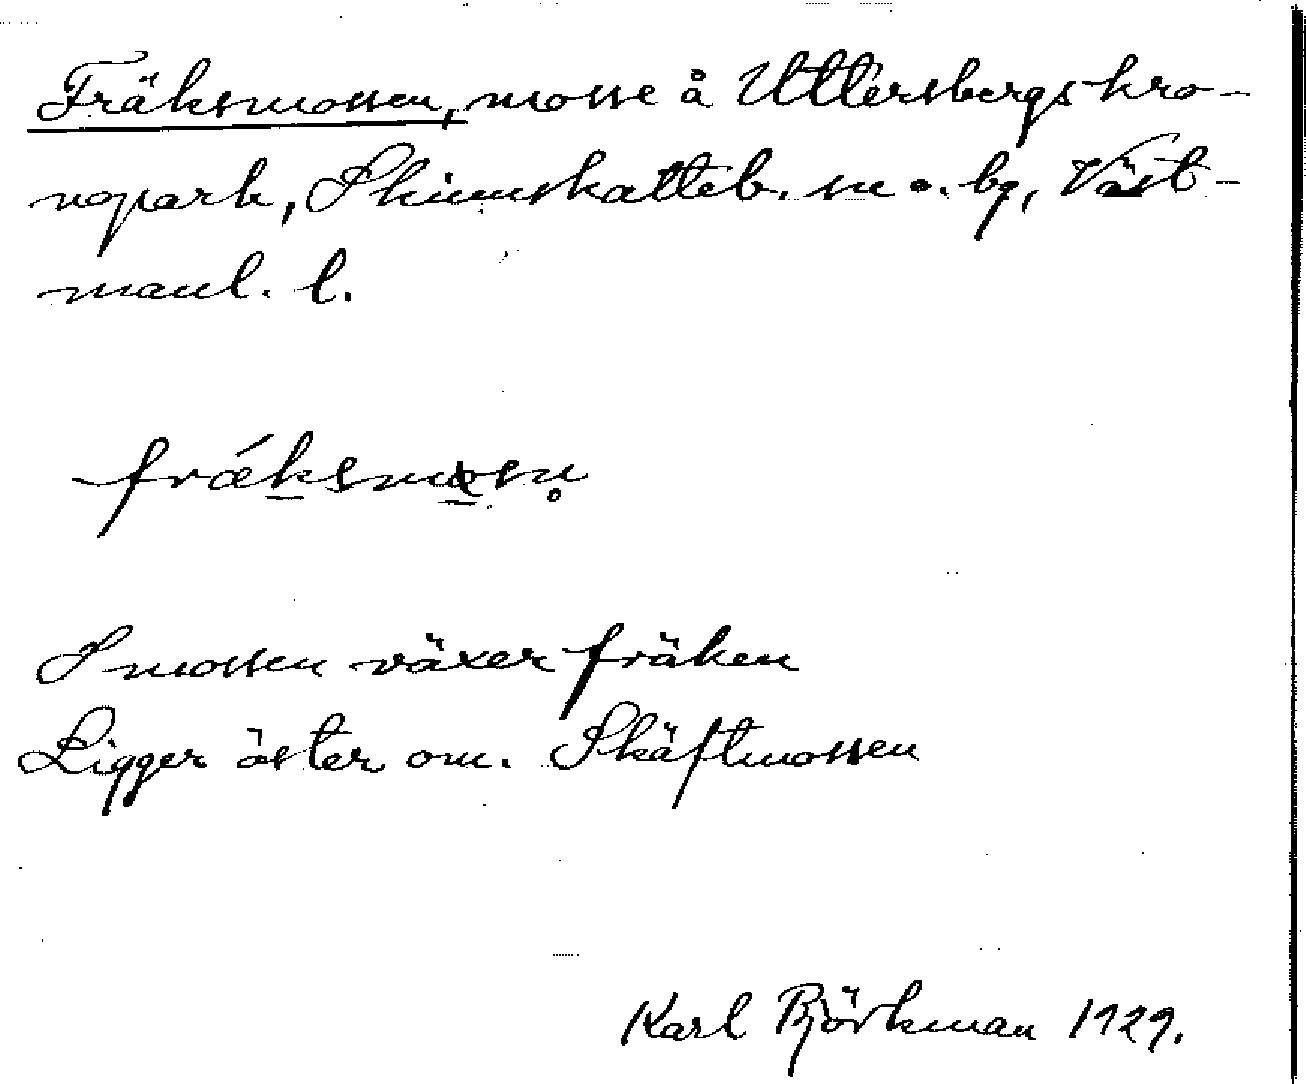 Fräksmossen, mosse å Uttersbergs kro-
nopark, Skinnskatteb. sn o. bg, Väst-
manl. l.
fräksmosn̥
I mossen växer fräken
Ligger öster om. Skäftmossen
Karl Björkman 1929.